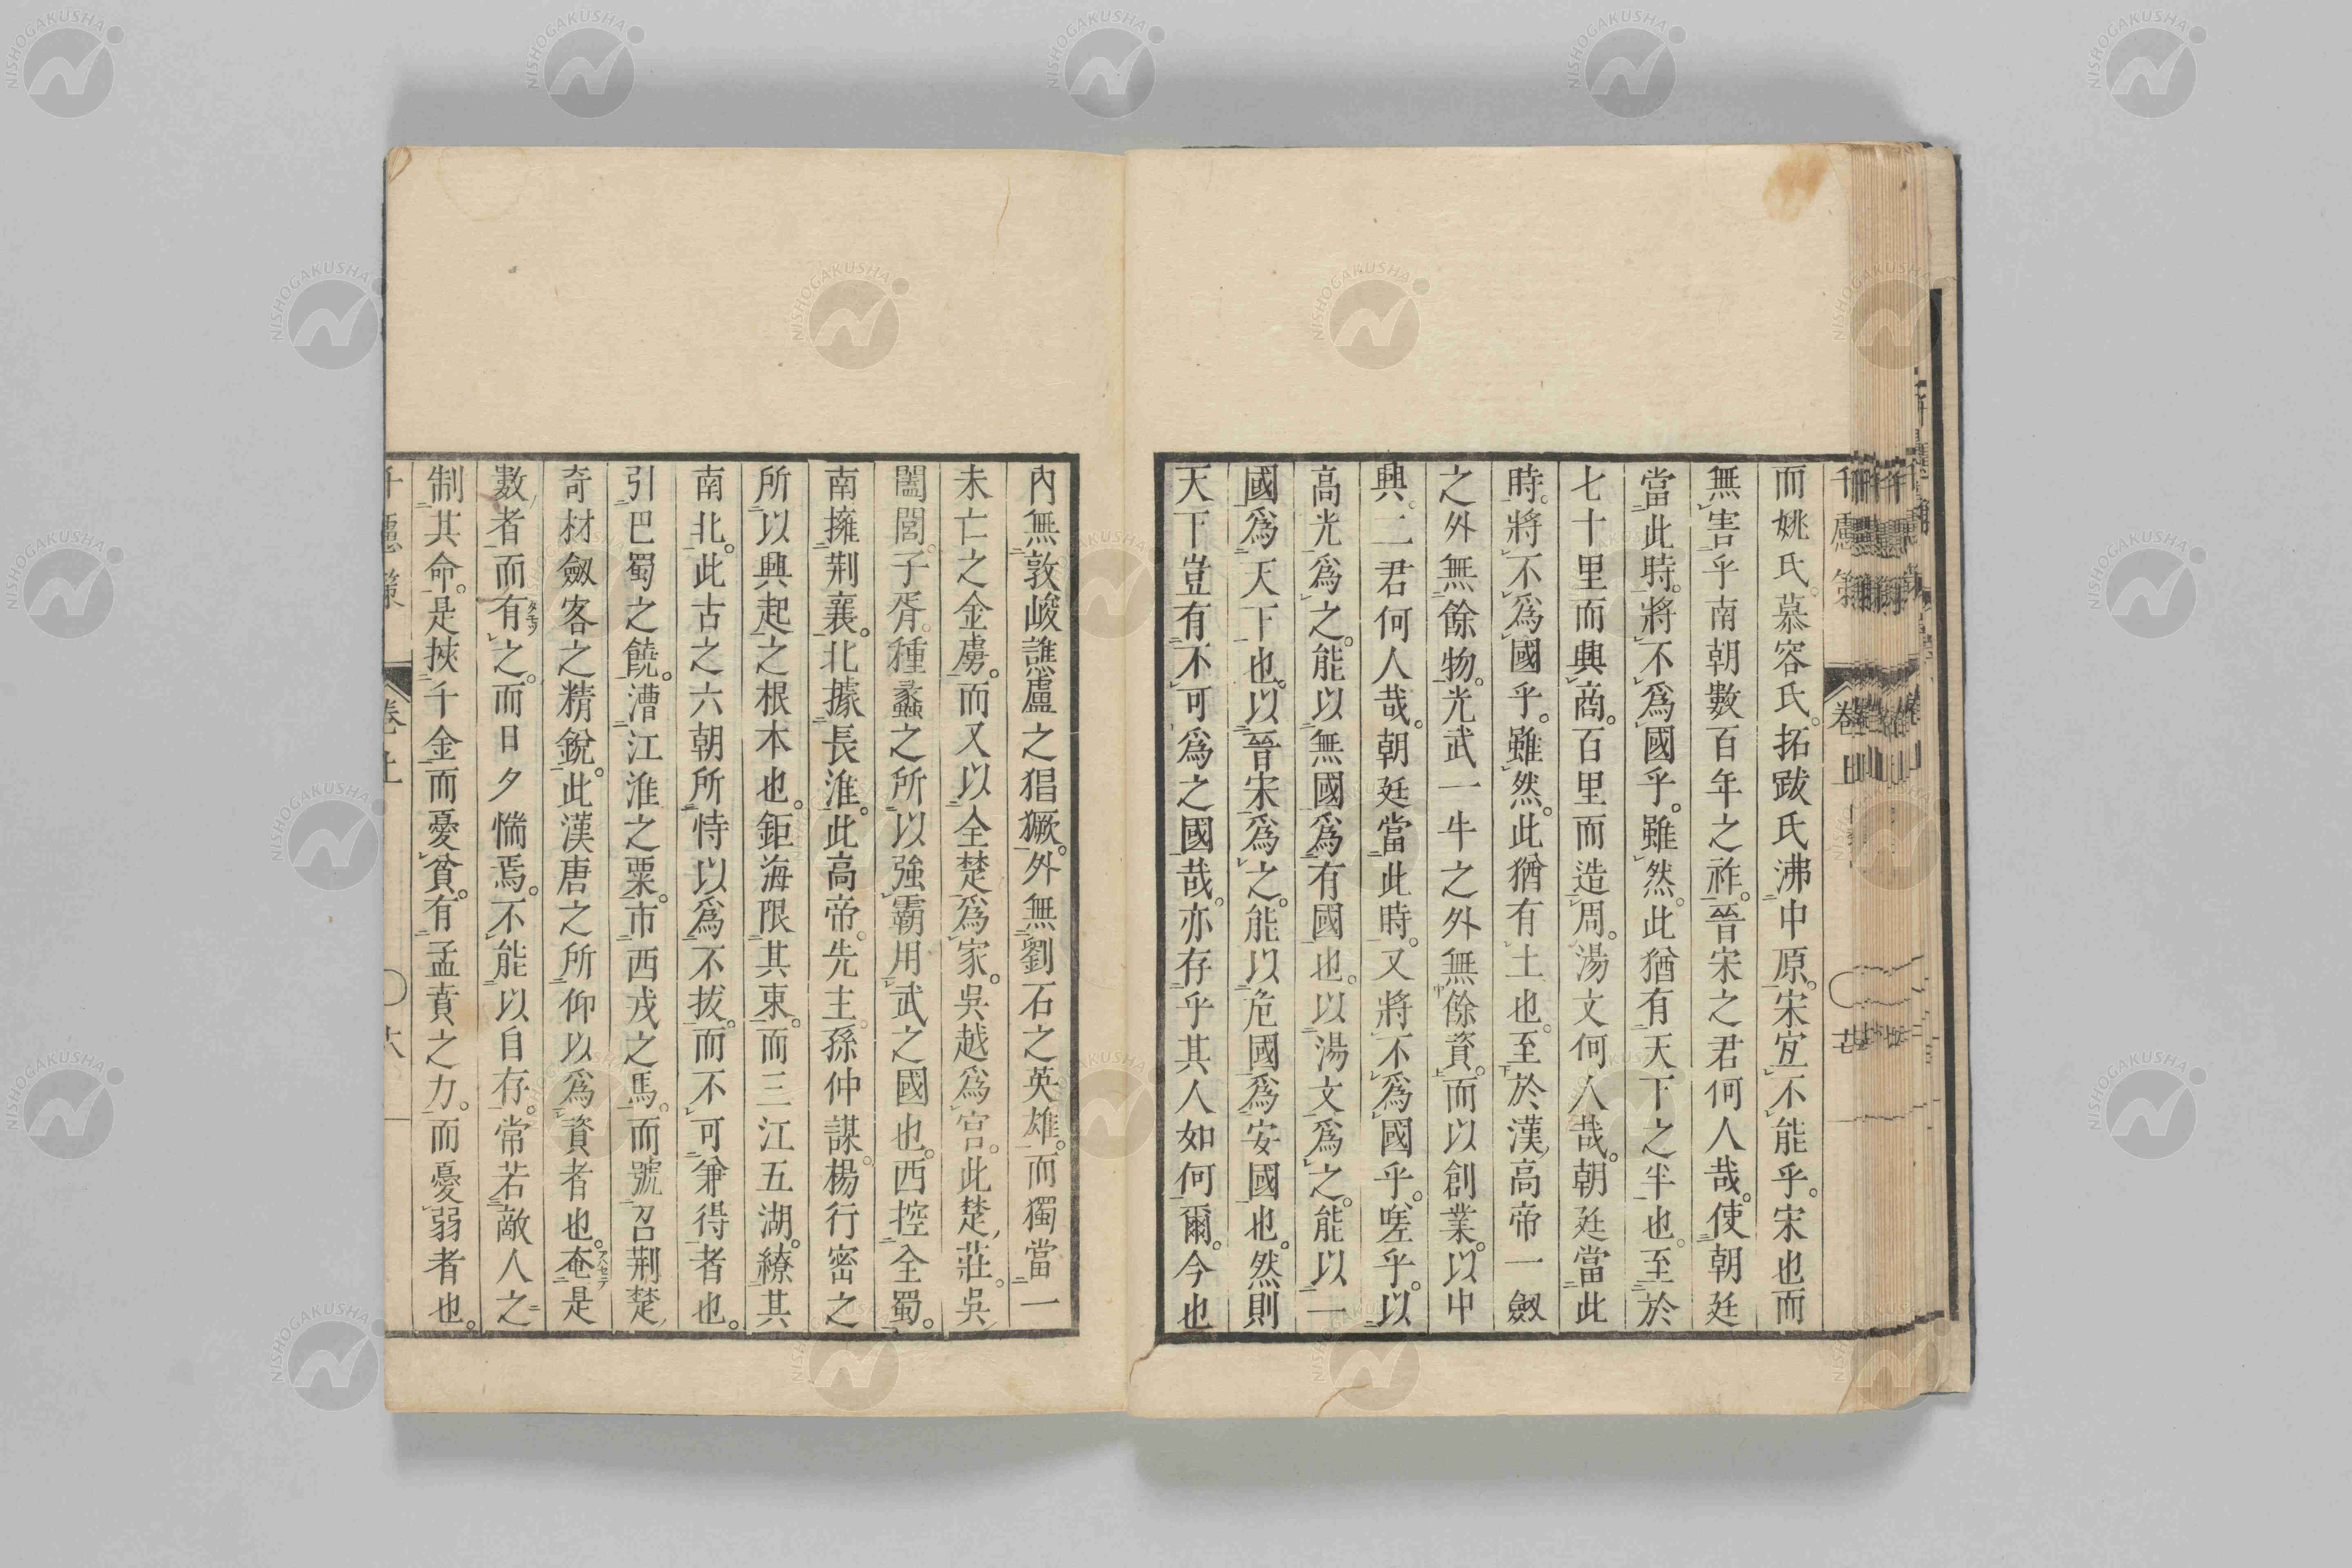 而姚氏。慕容氏。拓跋氏沸中原。宋宜不能乎。宋也而
無害乎南朝數百年之祚。晉宋之君何人哉。使朝廷
當此時。將不爲國乎。雖然。此猶有天下之半也。至於
七十里而興商。百里而造周。湯文何人哉。朝廷當此
時。將不爲國乎。雖然。此猶有土也。至於漢高帝一劔
之外無餘物。光武一牛之外無餘資。而以創業。以中
興。二君何人哉。朝廷當此時。又將不爲國乎。嗟乎。以
高光爲之。能以無國爲有國也。以湯文爲之。能以一
國爲天下也。以晉宋爲之。能以危國爲安國也。然則
天下豈有不可爲之國哉。亦存乎其人如何爾。今也
內無敦峻譙盧之猖獗。外無劉石之英雄。而獨當一
未亡之金虜。而又以全楚爲家。吳越爲宮。此楚莊。吳
闔閭。子胥。種蠡之所以強霸用武之國也。西控全蜀。
南擁荆襄。北據長淮。此高帝。先主。孫仲謀。楊行密之
所以興起之根本也。鉅海限其東。而三江五湖。繚其
南北。此古之六朝所恃以爲不拔。而不可兼得者也。
引巴蜀之饒。漕江淮之粟。市西戎之馬。而號召荆楚
奇材劔客之精銳。此漢唐之所仰以爲資者也。奄是
數者而有之。而日夕惴焉。不能以自存。常若敵人之
制其命。是挾千金而憂貧。有孟賁之力。而憂弱者也。
千慮策 卷上
NISHOGAKUSHA